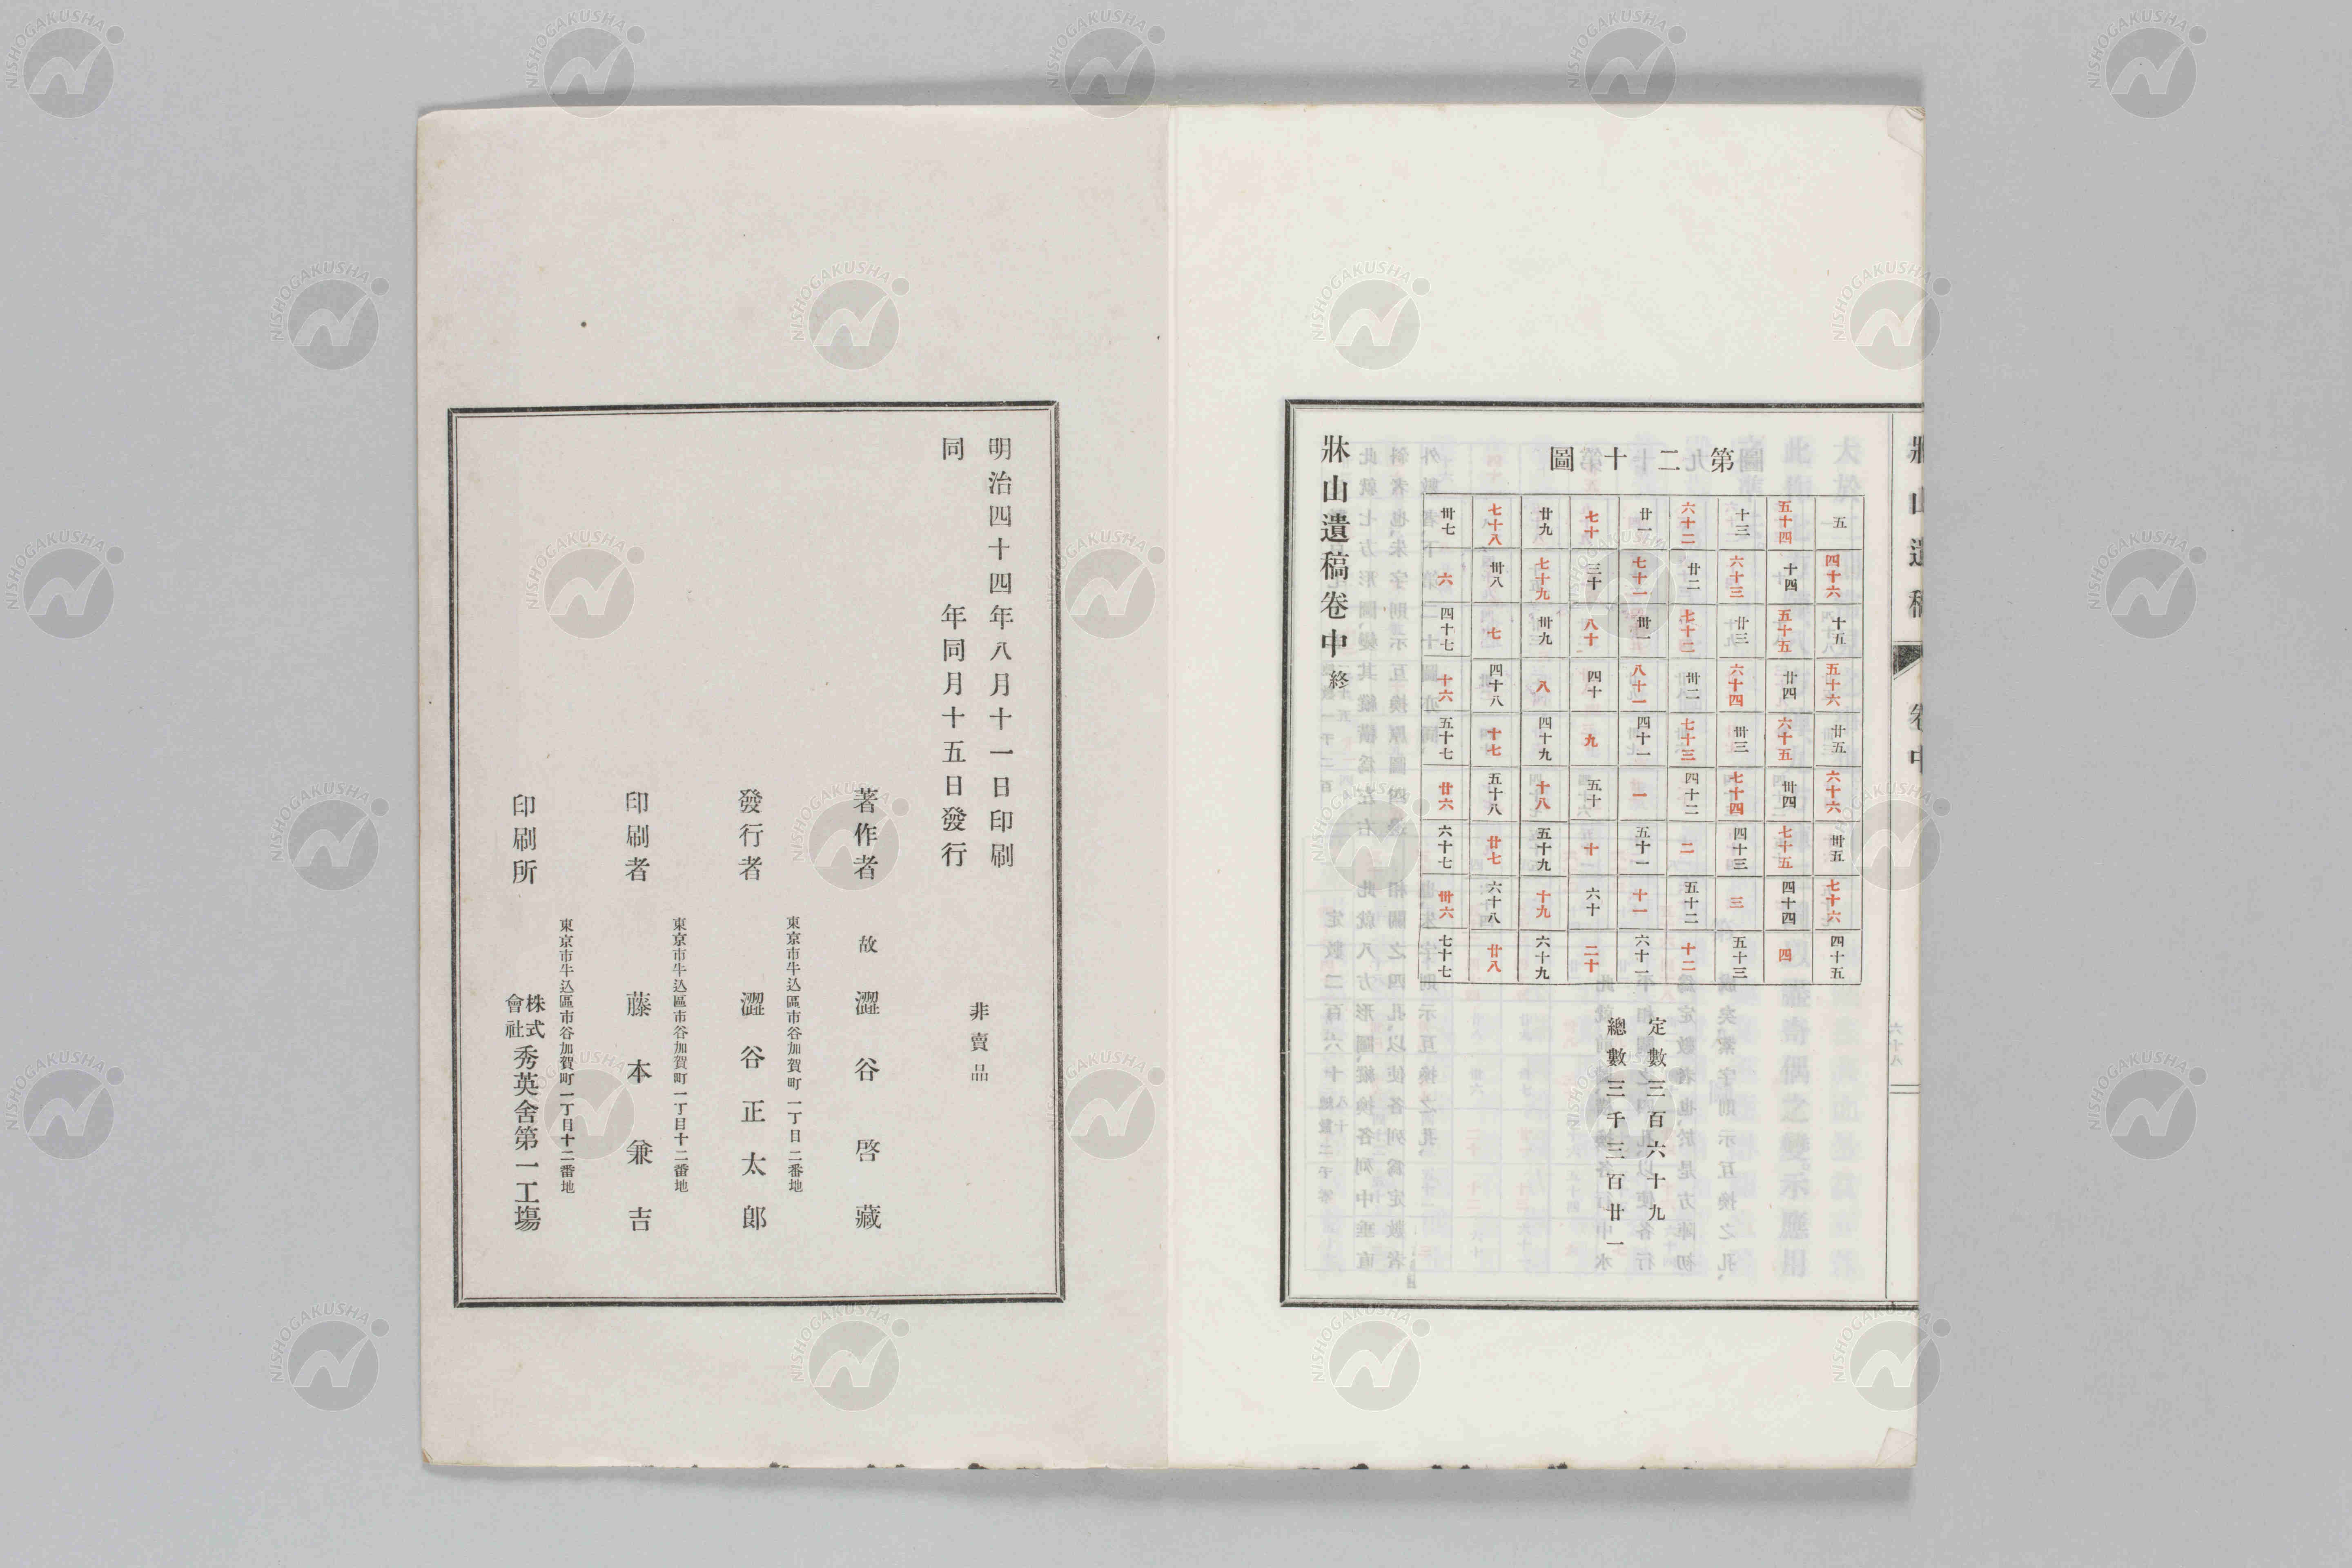 牀山遺稿
卷中
六十八
第二十圖
五 五十四 十三 六十二 廿一 七十 廿九 七十八 卅七
四十六 十四 六十三 廿二 七十一 三十 七十九 卅八 六
十五 五十五 廿三 七十二 卅一 八十 卅九 七 四十七
五十六 廿四 六十四 卅二 八十一 四十 八 四十八 十六
廿五 六十五 卅三 七十三 四十一 九 四十九 十七 五十七
六十六 卅四 七十四 四十二 一 五十 十八 五十八 廿六
卅五 七十五 四十三 二 五十一 十 五十九 廿七 六十七
七十六 四十四 三 五十二 十一 六十 十九 六十八 卅六
四十五 四 五十三 十二 六十一 二十 六十九 廿八 七十七
定數三百六十九
總數三千三百廿一
牀山遺稿卷中終
明治四十四年八月十一日印刷
同年同月十五日發行
非賣品
著作者 故 澀谷啓藏
東京市牛込區市谷加賀町一丁目二番地
發行者 澀谷正太郎
東京市牛込區市谷加賀町一丁目十二番地
印刷者 藤本兼吉
東京市牛込區市谷加賀町一丁目十二番地
印刷所 株式會社秀英舍第一工場
NISHOGAKUSHA